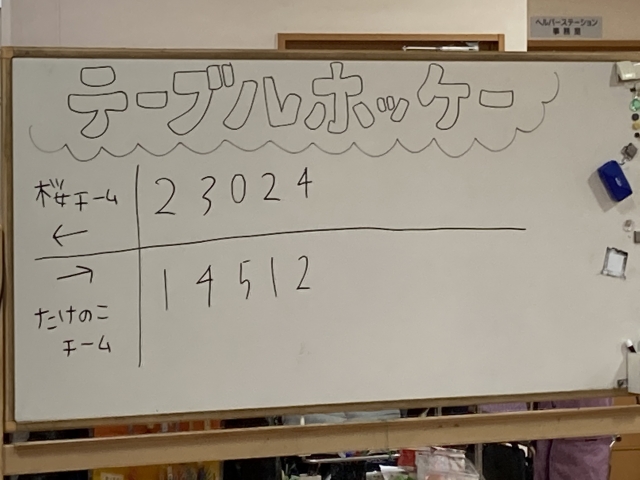 ヘルパーステーション
事務室
テーブルホッケー
桜チーム 2 3 0 2 4
←
→ 1 4 5 1 2
たけのこ
チーム